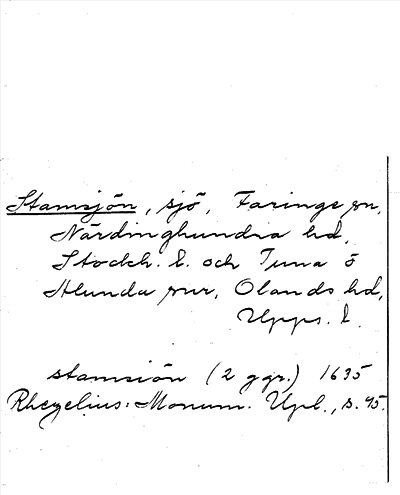 Stamsjön, sjö, Faringe sn,
Närdinghundra hd,
Stockh. l. och Tuna o
Stunda snr, Olands hd,
Upps. l.
stamsiön (2 ggr.) 1635
Rhezelius: Monum. Upl., s. 95.